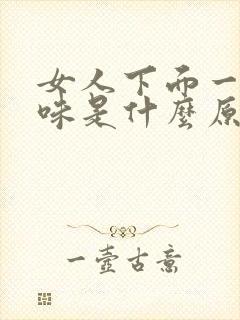 女人下面一
味是什麼原
一壺古意